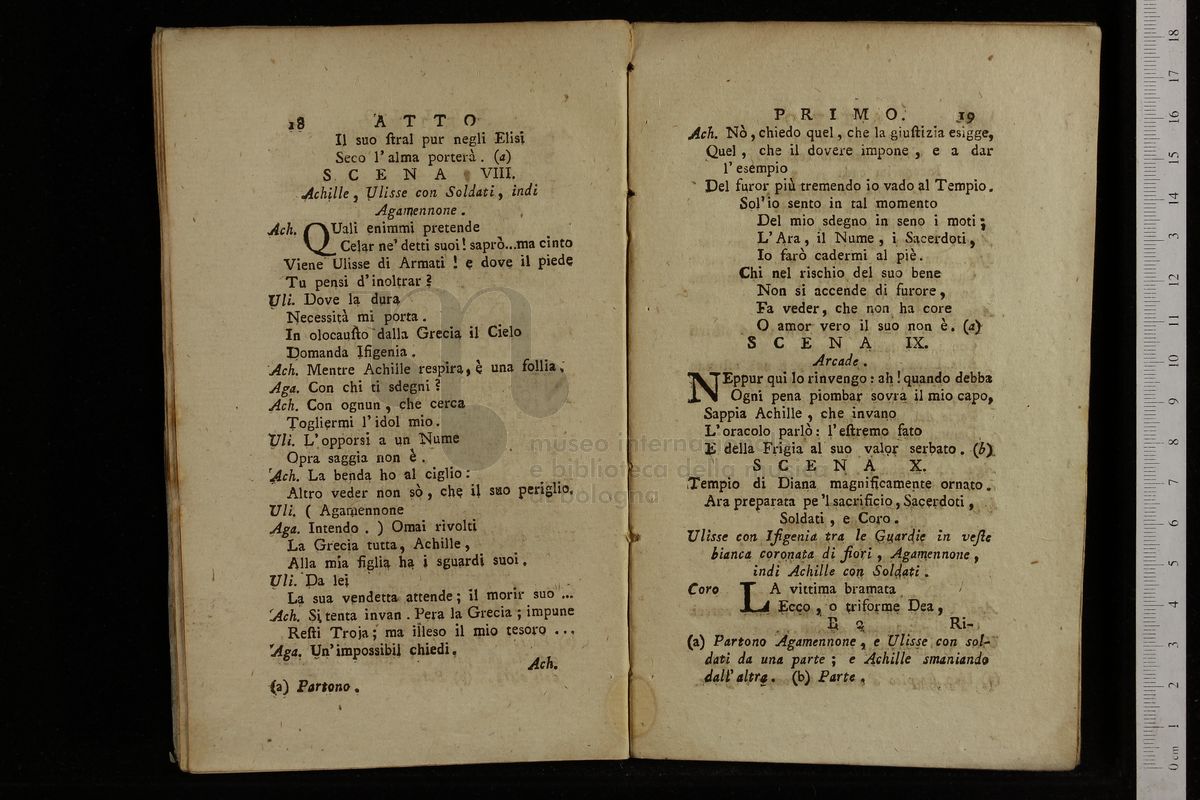 18 A T T O
Il suo ſtral pur negli Elisi
Seco l' alma porterà. (a)
S C E N A VIII.
Achille, Ulisse con Soldati, indi
Agamennone.
Ach. QUali enimmi pretende
Celar ne' detti suoi! saprò...ma cinto
Viene Ulisse di Armati ! e dove il piede
Tu pensi d'inoltrar?
Uli. Dove la dura
Necessità mi porta.
In olocauſto dalla Grecia il Cielo
Domanda Ifigenia.
Ach. Mentre Achille respira, è una follia.
Aga. Con chi ti sdegni?
Ach. Con ognun, che cerca
Togliermi l'idol mio.
Uli. L'opporsi a un Nume
Opra saggia non è.
Ach. La benda ho al ciglio:
Altro veder non sò, che il suo periglio.
Uli. ( Agamennone
Aga. Intendo. ) Omai rivolti
La Grecia tutta, Achille,
Alla mia figlia ha i sguardi suoi.
Uli. Da lei
La sua vendetta attende; il morir suo ...
Ach. Si tenta invan. Pera la Grecia; impune
Reſti Troja; ma illeso il mio tesoro ...
Aga. Un'impossibil chiedi.
Ach.
(a) Partono.
P R I M O. 19
Ach. Nò, chiedo quel, che la giuſtizia esigge,
Quel, che il dovere impone, e a dar
l'esempio
Del furor più tremendo io vado al Tempio.
Sol'io sento in tal momento
Del mio sdegno in seno i moti;
L'Ara, il Nume, i Sacerdoti,
Io farò cadermi al piè.
Chi nel rischio del suo bene
Non si accende di furore,
Fa veder, che non ha core
O amor vero il suo non è. (a)
S C E N A IX.
Arcade.
NEppur qui lo rinvengo: ah! quando debba
Ogni pena piombar sovra il mio capo,
Sappia Achille, che invano
L'oracolo parlò: l'eſtremo fato
E della Frigia al suo valor serbato. (b)
S C E N A X.
Tempio di Diana magnificamente ornato.
Ara preparata pe'l sacrificio, Sacerdoti,
Soldati, e Coro.
Ulisse con Ifigenia tra le Guardie in veſte
bianca coronata di fiori, Agamennone,
indi Achille con Soldati.
Coro LA vittima bramata
Ecco, o triforme Dea,
E 2 Ri-
(a) Partono Agamennone, e Ulisse con sol-
dati da una parte; e Achille smaniando
dall'altra. (b) Parte.
museo internazionale
e biblioteca della musica
di bologna
0 cm 1 2 3 4 5 6 7 8 9 10 11 12 13 14 15 16 17 18